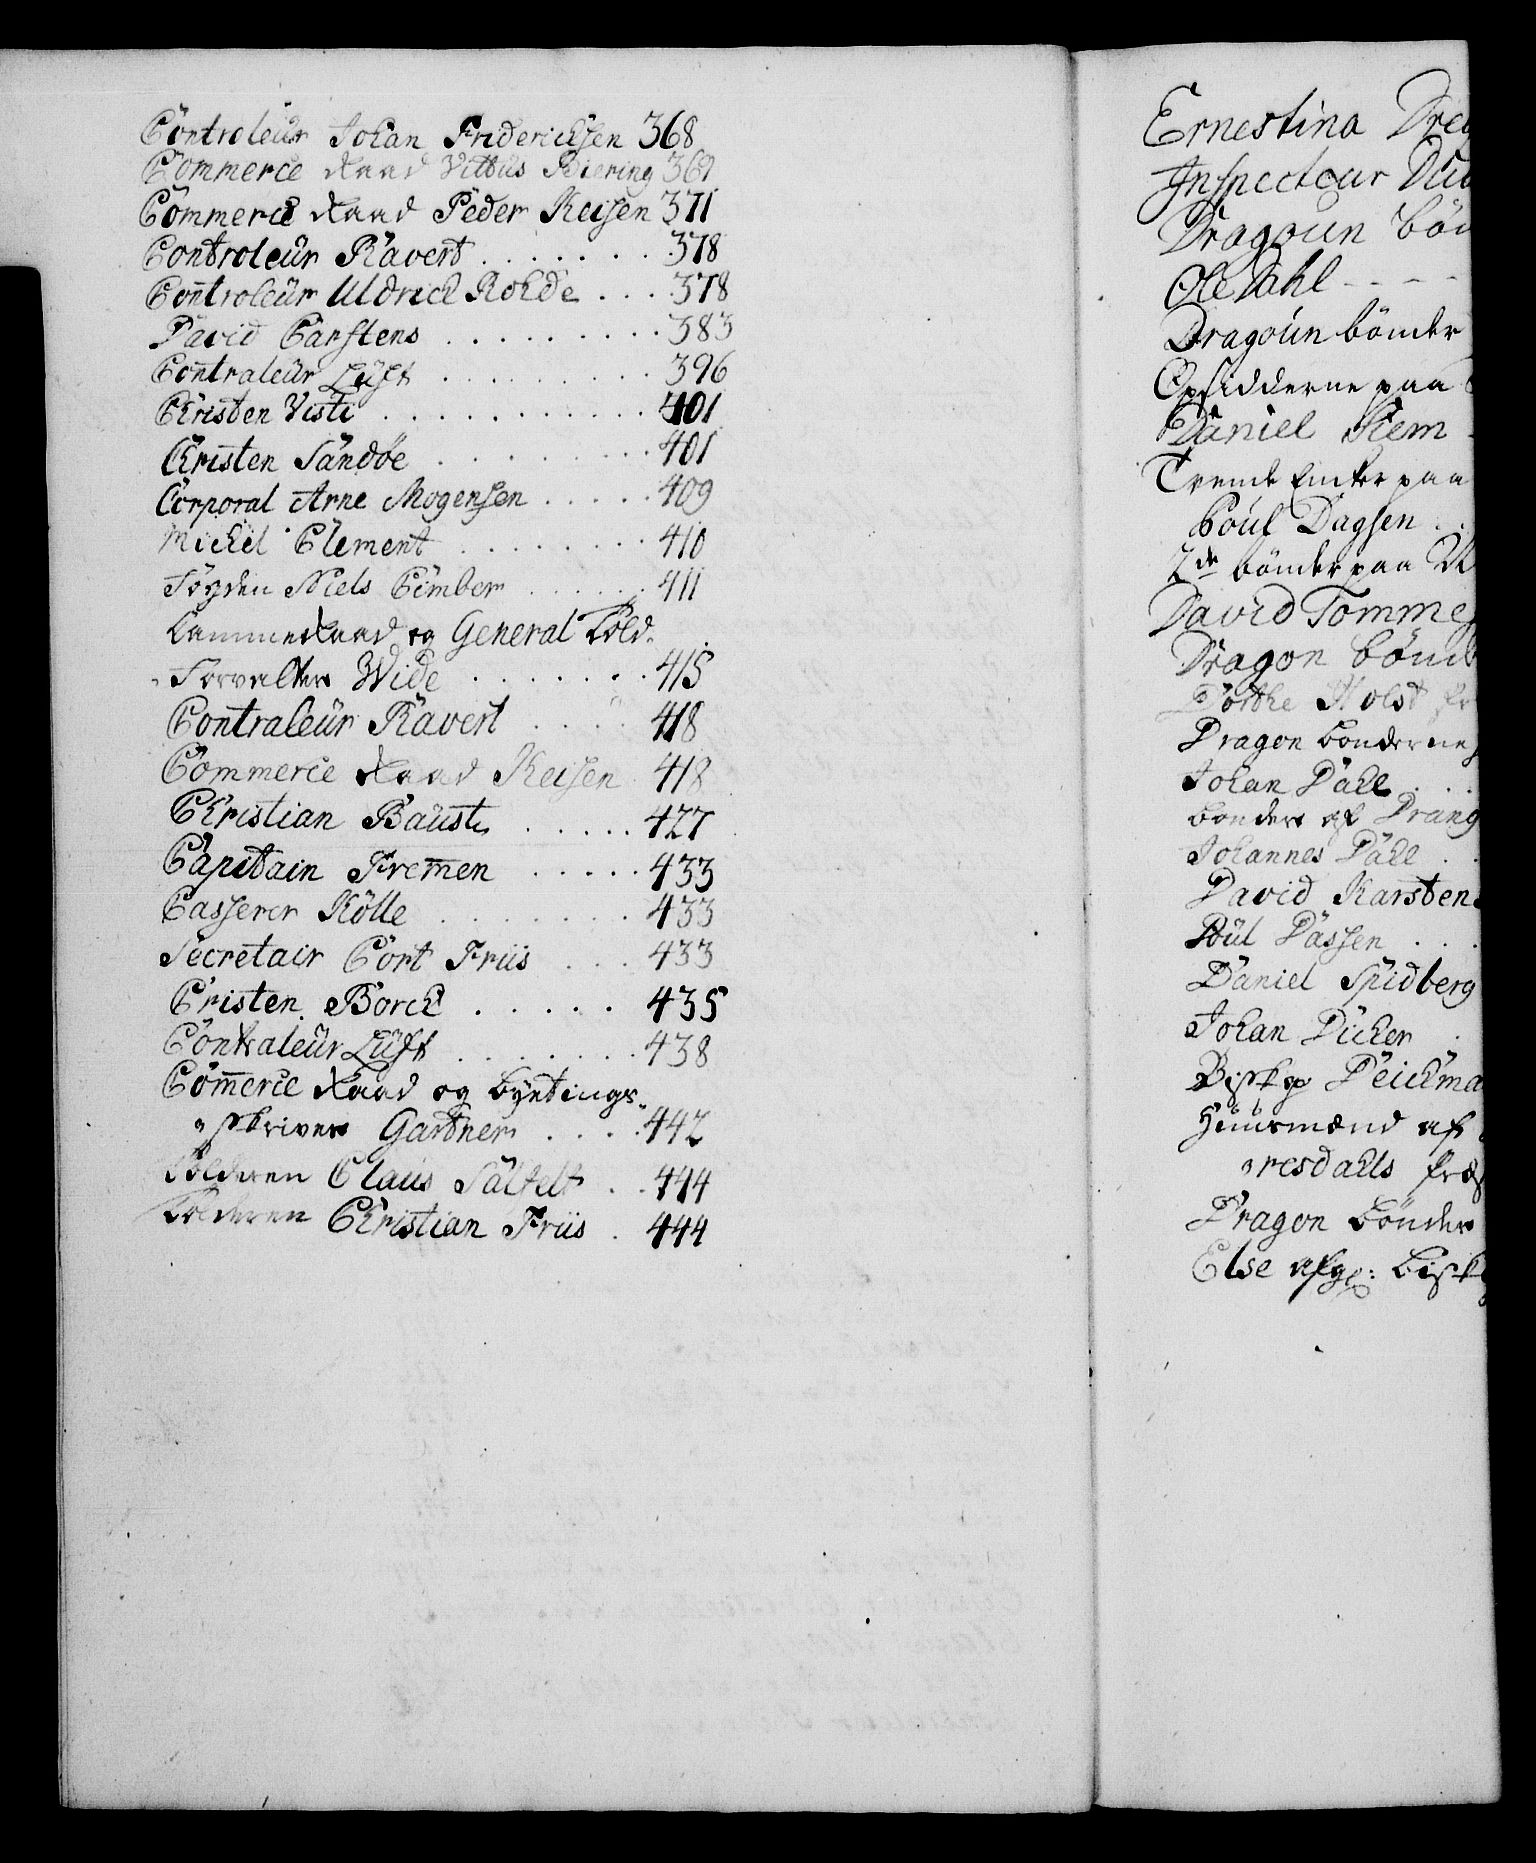 Controleur Johan Friderichsen 368
Commerce Raad Vitus Biering 369
Commerce Raad Peder Keisen 371
Controleür Ravert . . . . . . . 378
Controleür Uldrich Rohde . . . . 378
David Carstens . . . . . . . . . 383
Contraleür Lüft . . . . . . . . . 396
Christen Visti . . . . . . . . . . . 401
Christen Sandøe . . . . . . . . 401
Corporal Arne Mogensen . . . . . 409
Michel Clement . . . . . . . . 410
Fogden Niels Cimber . . . . . . 411
Cammerraad og General Told-
Forvalter Wide . . . . . . . 415
Contraleür Ravert . . . . 418
Commerce Raad Keisen 418
Christian Baüst . . . . . 427
Capitain Fremen . . . . . 433
Casserer Kölle . . . . . . . . 433
Secretair Cort Friis . . . 433
Cristen Borch . . . . . 435
Contraleür Lüft . . . . . . . 438
Commerce Raad og byetings-
skriver Gartner . . . . 442
Tolderen Claüs Saltelt . . 444
Tolderen Christian Friis . 444
Ernestina
Inspecteur
Dragoun
Ole Dahl - - - -
Dragoün bönder
Opsidderne paa
Daniel Kem
Trende Encker paa
Poül Dagsen . .
2de bönder paa
David Tomme
Dragon
Dorthe Holst
Dragon bonderne
Johan Dahl . . .
bonder af Drang
Johannes Dahl . .
David Karsten
Poül Dassen . . .
Daniel Spidberg
Johan Dicher .
Biskop Deichma
Huusmænd af
resdahls præs
Dragon bönder
Else afg: bisk